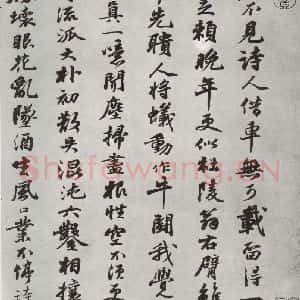 不見詩人借車無可載留得一
足賴晚年更似杜陵翁右臂雖
先聵人將蟻動作牛鬭我覺
真一噫聞塵掃盡根性空不須更
流派大朴初散失混沌六鑿相攘
壞眼花亂墜酒生風口業不停詩
Shufawang.CN